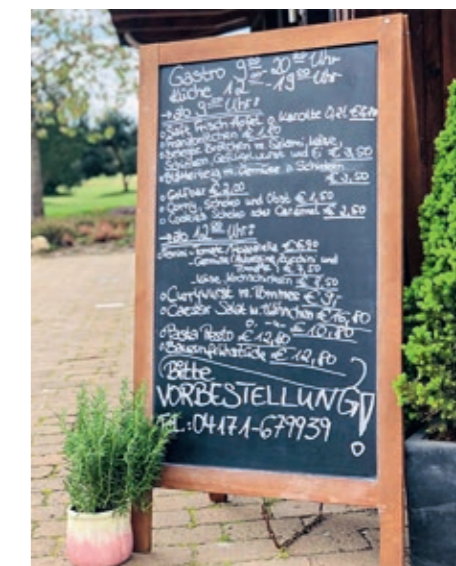 Gastro 9⁰⁰ - 20⁰⁰ Uhr
Küche 12⁰⁰ - 19⁰⁰ Uhr
→ ab 9⁰⁰ Uhr:
o Saft frisch Apfel o. Karotte 0,2l
€ 1,80
o Brötchen m. Salami, Käse,
Schinken, Geflügelwurst und Ei € 3,50
o Blätterteig m. Gemüse o. Schinken
€ 3,50
o Golfbar € 2,00
o Corny, Schoko und Obst € 1,50
o Cookies Schoko oder Caramel € 2,60
→ ab 12⁰⁰ Uhr:
- Tomate/Mozzarella € 6,90
- Gemüse (Aubergine, Zucchini und
Tomate) € 7,50
- Käse, Kochschinken
o Currywurst m. Pommes € 9,-
o Caesar Salat m. Hähnchen € 16,80
€ 10,80
o Pasta Pesto € 12,80
o Bauernfrühstück € 12,80
Bitte
VORBESTELLUNG!
TEL.: 04171-679939